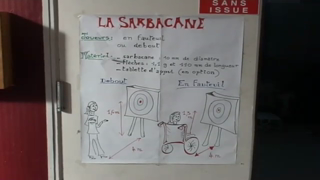 SANS
ISSUE
LA SARBACANE
Joueurs: en fauteuil
ou debout
Matériel: sarbacane
de diamètre
flèches:
tablette d'appui (en option)
Debout
En Fauteuil